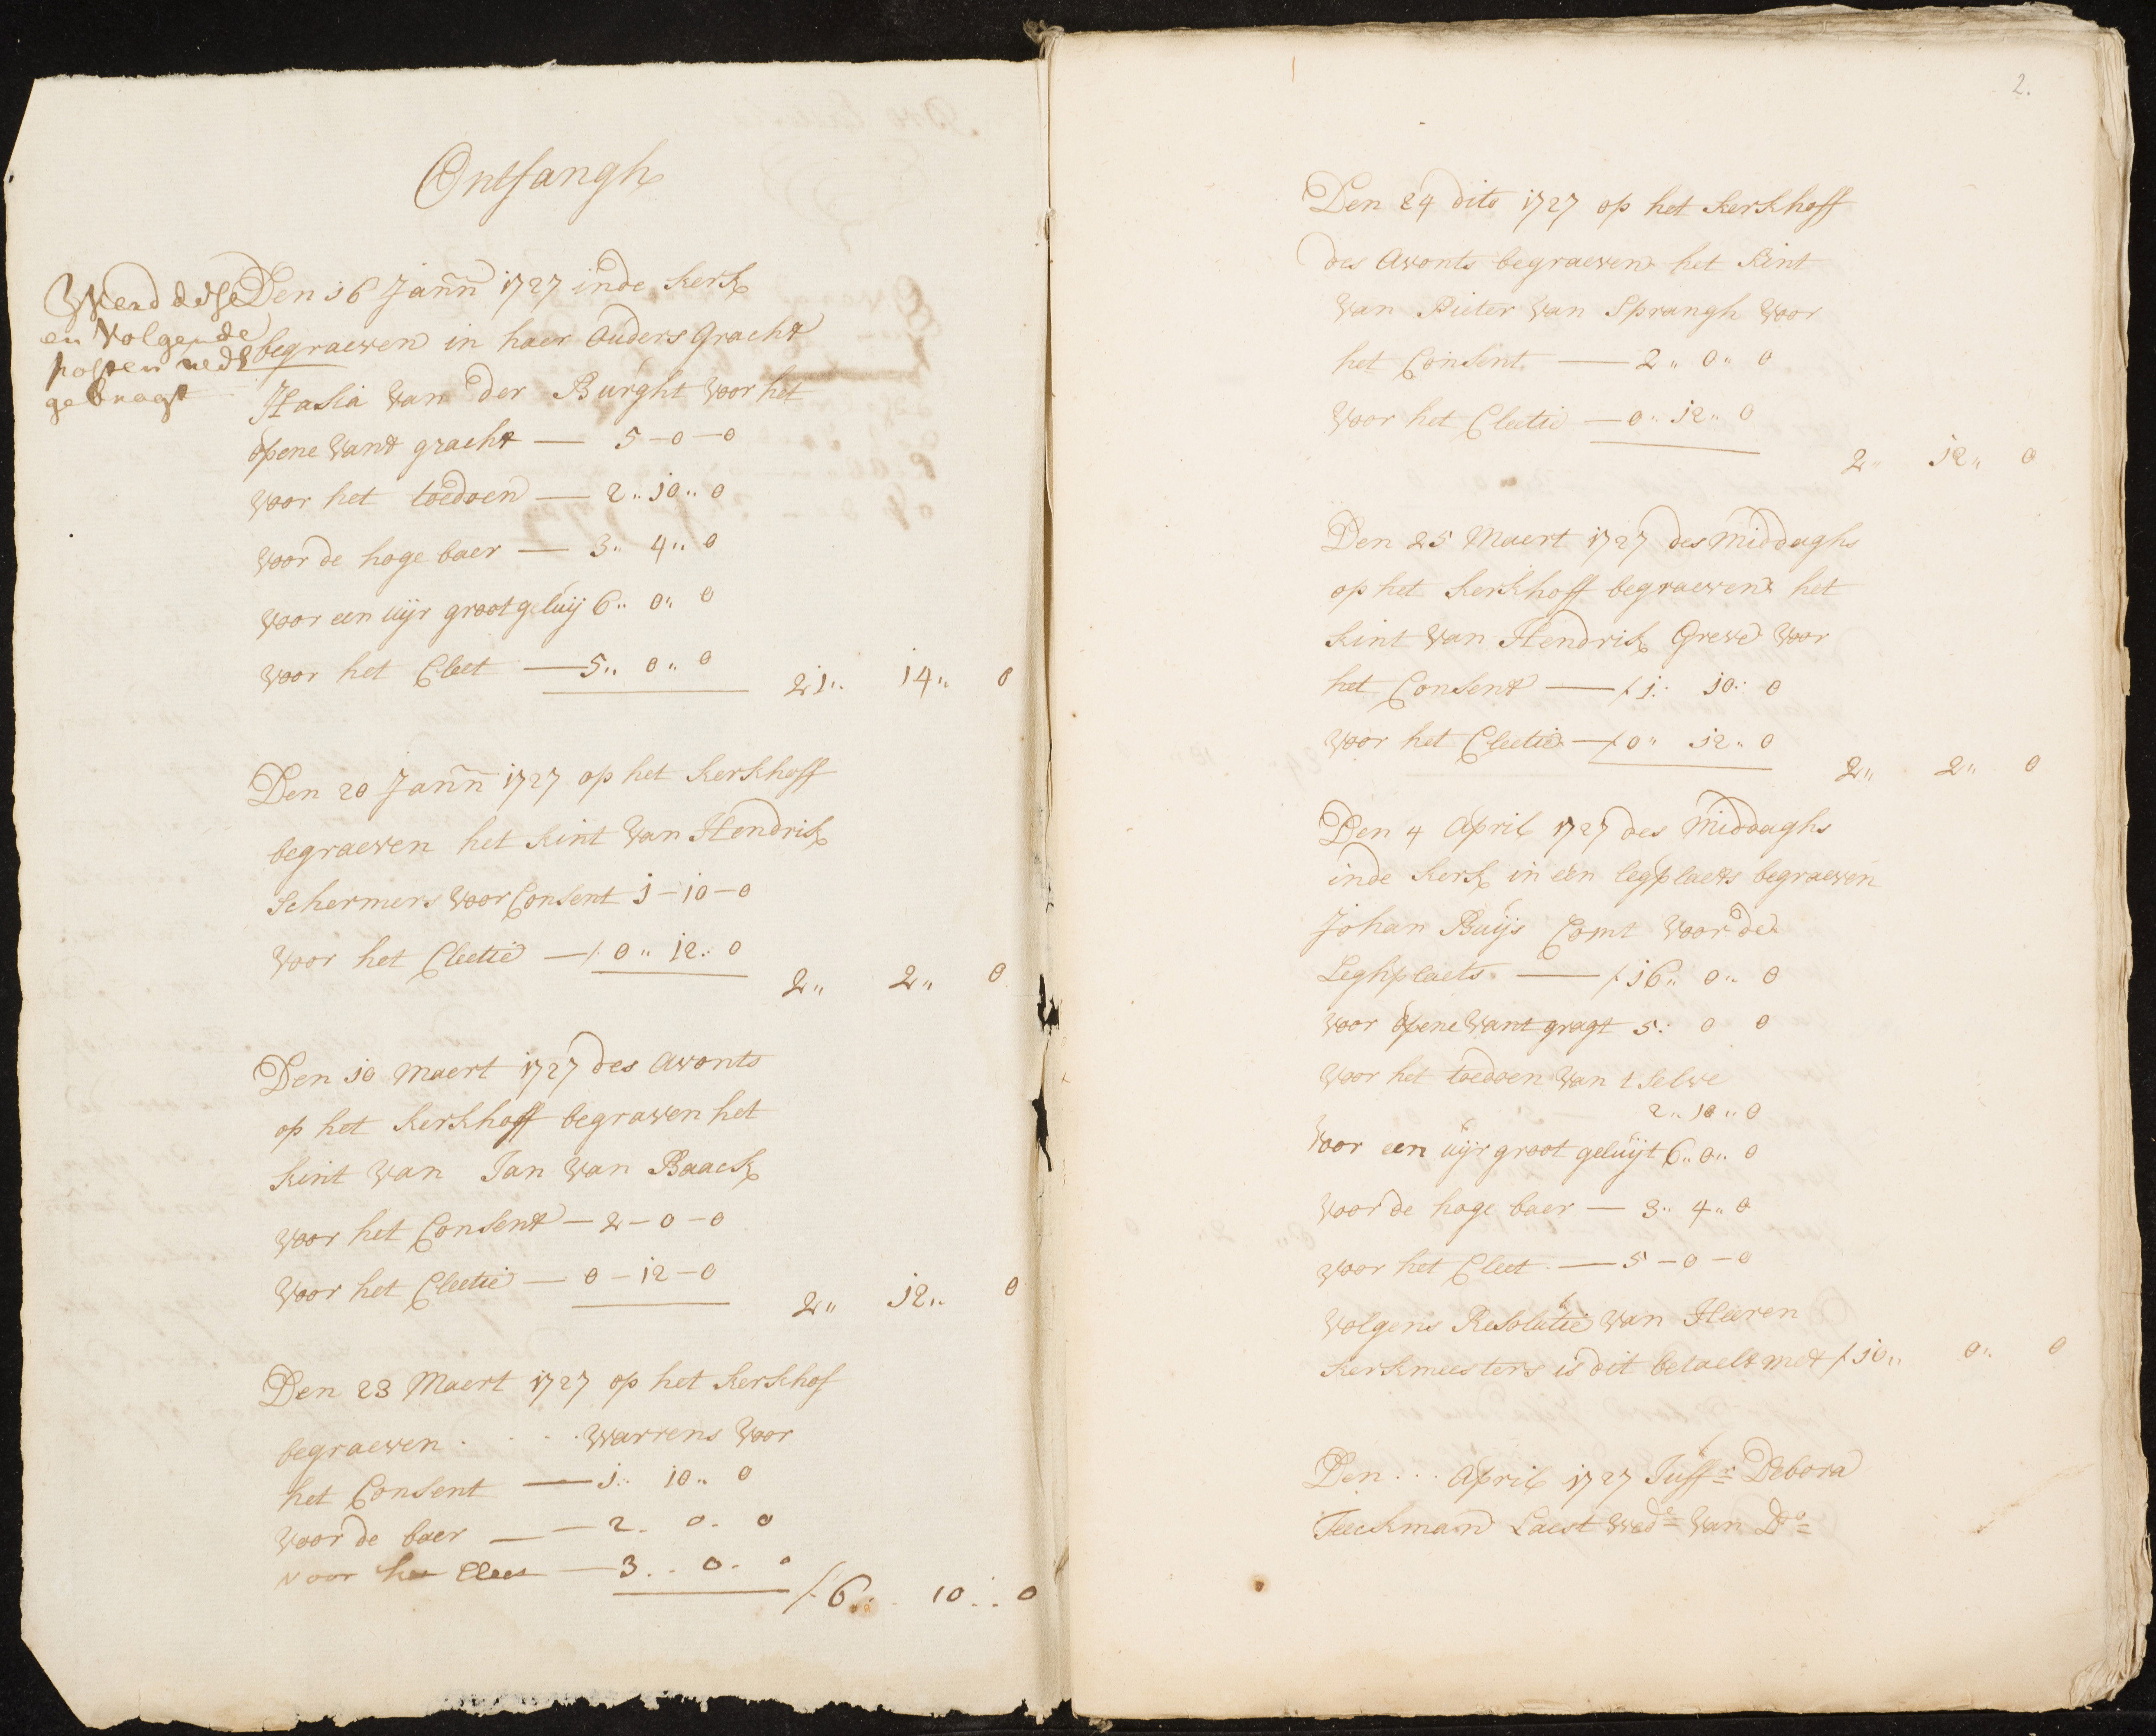 Ontfangh
Werd desse
en Volgende
posten nedr
gebragt
Den 16 Jann 1727 inde Kerk
begraeven in haer ouders gracht
Hasia van der Burght voor het
opene vant gracht — 5 - 0 - 0
voor het toedoen — 2 " 10 " 0
voor de hoge baer — 3 " 4 " 0
voor een uijr groot geluij 6 " 0 " 0
voor het Cleet — 5 " 0 " 0
21 " 14 " 0
Den 20 Jann 1727 op het Kerkhoff
begraeven het Kint van Hendrik
Schermers voor Consent 1 - 10 - 0
voor het Cleetie — f 0 " 12 " 0
2 " 2 " 0
Den 10 Maert 1727 des avonts
op het Kerkhoff begraven het
Kint van Jan van Baack
voor het Consent — 2 - 0 - 0
voor het Cleetie — 0 - 12 - 0
2 " 12 " 0
Den 23 Maert 1727 op het Kerkhof
begraeven . . . . Warrens voor
het Consent — 1 " 10 " 0
voor de baer — 2 . 0 . 0
voor het Cleet — 3 . . 0 . 0
f 6 . . 10 . . 0
2.
Den 24 dito 1727 op het Kerkhoff
des avonts begraeven het Kint
van Pieter van Sprangh voor
het Consent — 2 " 0 " 0
voor het Cleetie — 0 " 12 " 0
2 " 12 " 0
Den 25 Maert 1727 des middaghs
op het Kerkhoff begraeven het
Kint van Hendrik Greve voor
het Consent — f 1 : 10 : 0
voor het Cleetie — f 0 " 12 " 0
2 " 2 " 0
Den 4 April 1727 des middaghs
inde Kerk in een legplaets begraeven
Johan Buijs Comt voor de
Leghplaets — f 16 " 0 " 0
voor opene vant gragt 5 : 0 0
voor het toedoen van t selve
2 " 10 " 0
voor een uijr groot geluijt 6 " 0 " 0
voor de hoge baer — 3 " 4 " 0
voor het Cleet — 5 - 0 - 0
volgens Resolutie van Heeren
Kerkmeesters is dit betaelt met f 10 " 0 " 0
Den . . . April 1727 Juffr Debora
Teeckman Laest Wede van Do